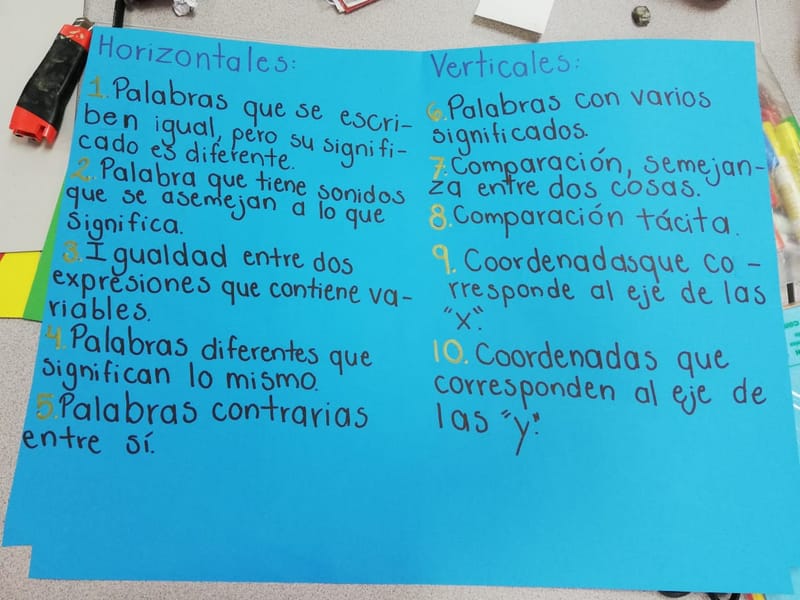 Horizontales:
1. Palabras que se escri-
ben igual, pero su signifi-
cado es diferente.
2. Palabra que tiene sonidos
que se asemejan a lo que
significa.
3. Igualdad entre dos
expresiones que contiene va-
riables.
4. Palabras diferentes que
significan lo mismo.
5. Palabras contrarias
entre sí.
Verticales:
6. Palabras con varios
significados.
7. Comparación, semejan-
za entre dos cosas.
8. Comparación tácita.
9. Coordenadasque co-
rresponde al eje de las
"x".
10. Coordenadas que
corresponden al eje de
las "y".